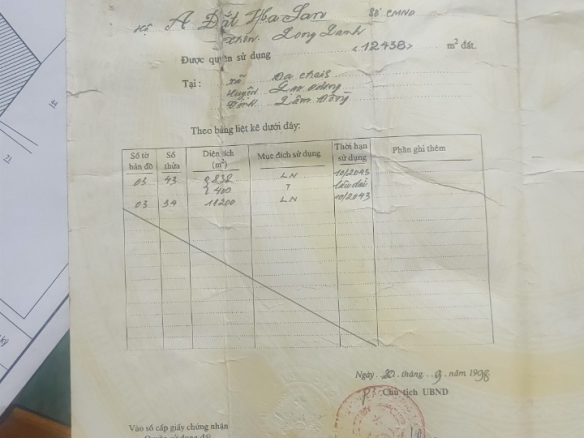 Hộ A Đắt Ha Lan Số CMND
Thôn Long Lanh
Được quyền sử dụng <12438> m² đất.
Tại : Xã Đa Chais
Huyện Lạc Dương
Tỉnh Lâm Đồng
Theo bảng liệt kê dưới đây:
Số tờ bản đồ Số thửa Diện tích (m²) Mục đích sử dụng Thời hạn sử dụng Phần ghi thêm
03 43 838 LN 10/2043
400 T lâu dài
03 54 11200 LN 10/2043
Ngày 20 tháng 9 năm 1998
Chủ tịch UBND
Vào sổ cấp giấy chứng nhận
21